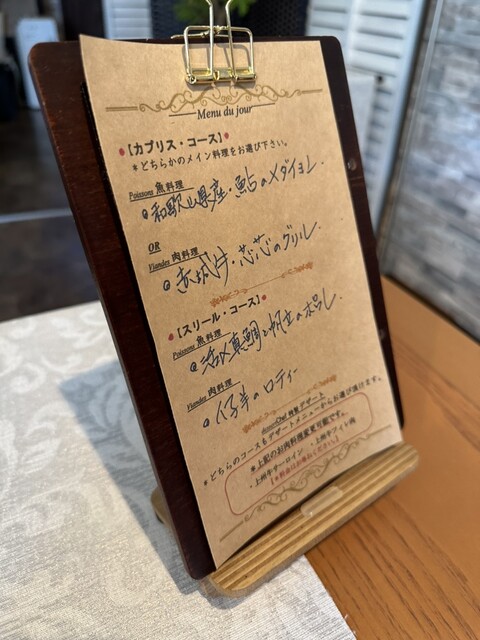 Menu du jour
【カプリス・コース】
＊どちらかのメイン料理をお選び下さい。
Poissons 魚料理
和歌山県産・鮎のメダイヨン
OR
Viandes 肉料理
赤城牛・芯芯のグリル
【スリール・コース】
Poissons 魚料理
活〆真鯛と帆立のポワレ
Viandes 肉料理
仔羊のロティー
dessert Chef 特製デザート
＊どちらのコースもデザートメニューからお選び頂けます。
＊上記のお肉料理変更可能です。
・上州牛サーロイン ・上州牛フィレ肉